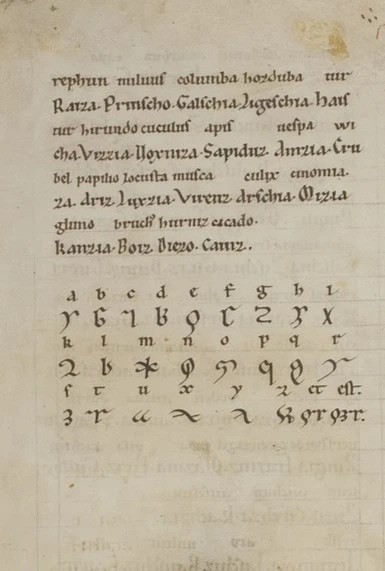 rephun miluus columba horduba tur
Raiza. Pririscho. Galschia. Zugeschia. Hais
tur hirundo cuculus apis uespa wi
cha. Vizzia. Noxinza. Sapiduz. Amzia. Cru
bel papilio locusta musca culix cinomia.
za. Ariz. Luxzia. Virenz. Arschia. Mizia
glimo hurniz cicado.
kanzia. Boiz. Diezo. Cauiz.
a b c d e f g h i
k l m n o p q r
s t u x y z et est.